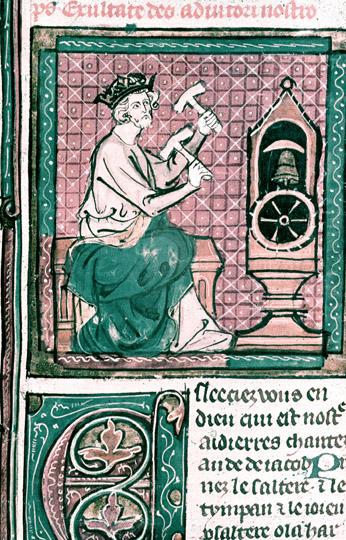 Exultate deo adiutori nostro
Esleeciez vous en
dieu qui est nostᵉ
aidierres chantez
au de de iacob Pr
nez le saltere ⁊ le
tympan ⁊ le ioieu
psaltere o la har